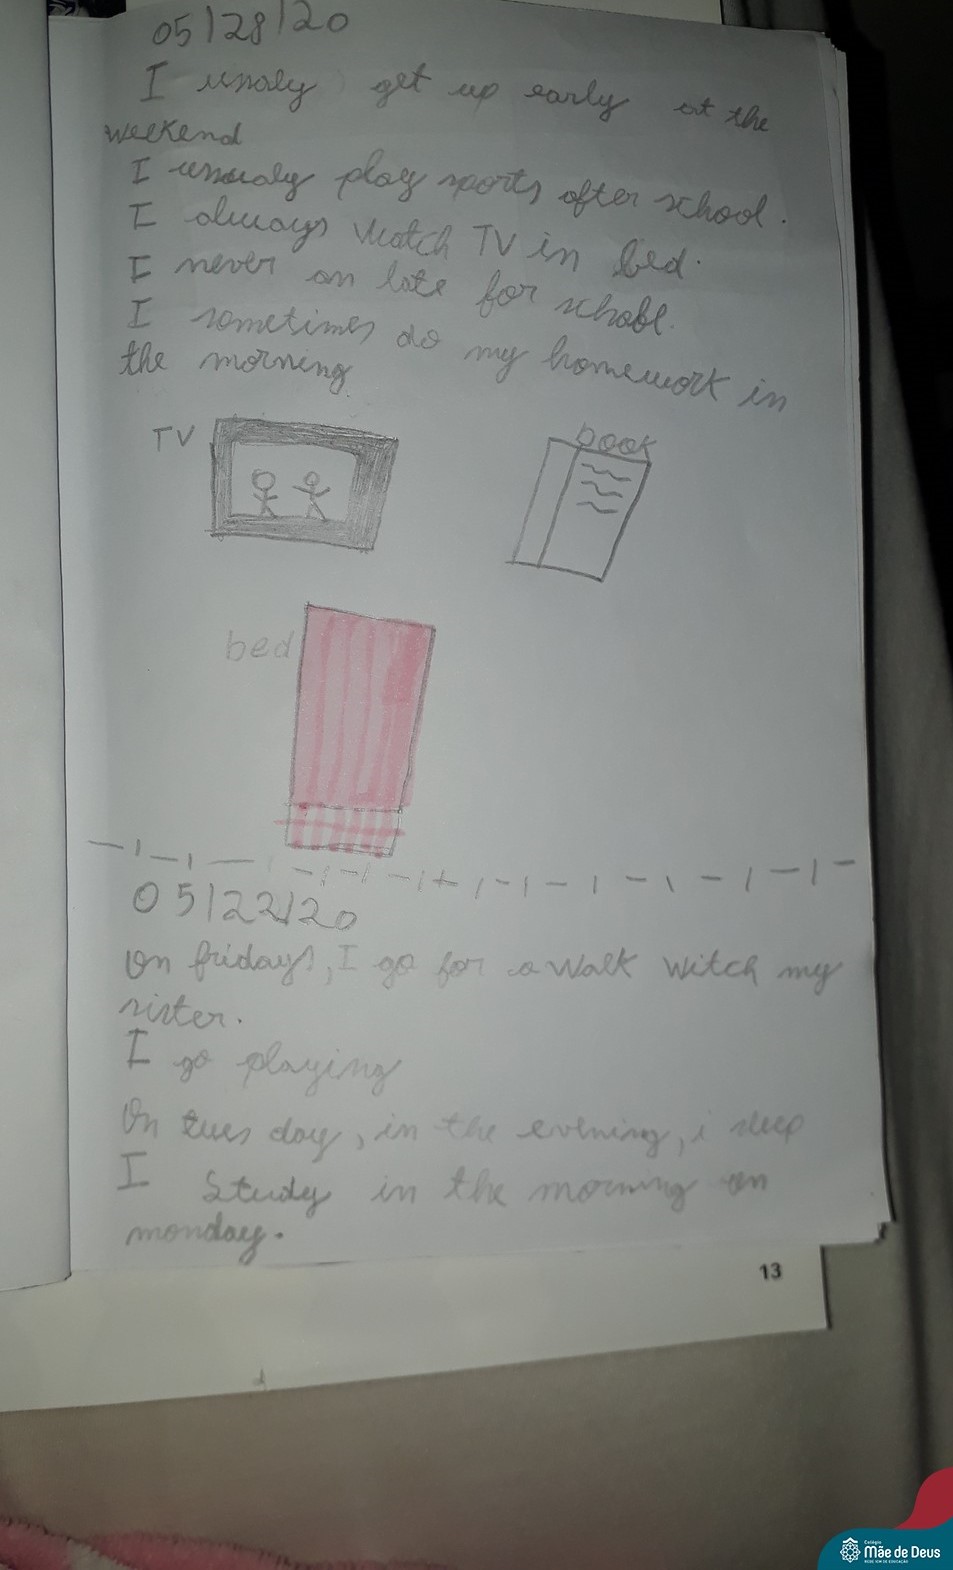 05/28/20
I usualy get up early at the
weekend
I usualy play sports after school.
I always watch TV in bed.
I never am late for school.
I sometimes do my homework in
the morning
TV
book
bed
05/22/20
On fridays, I go for a walk witch my
sister.
I go playing
On tues day, in the evening, i sleep
I study in the morning on
monday.
13
Colégio
Mãe de Deus
REDE ICM DE EDUCAÇÃO